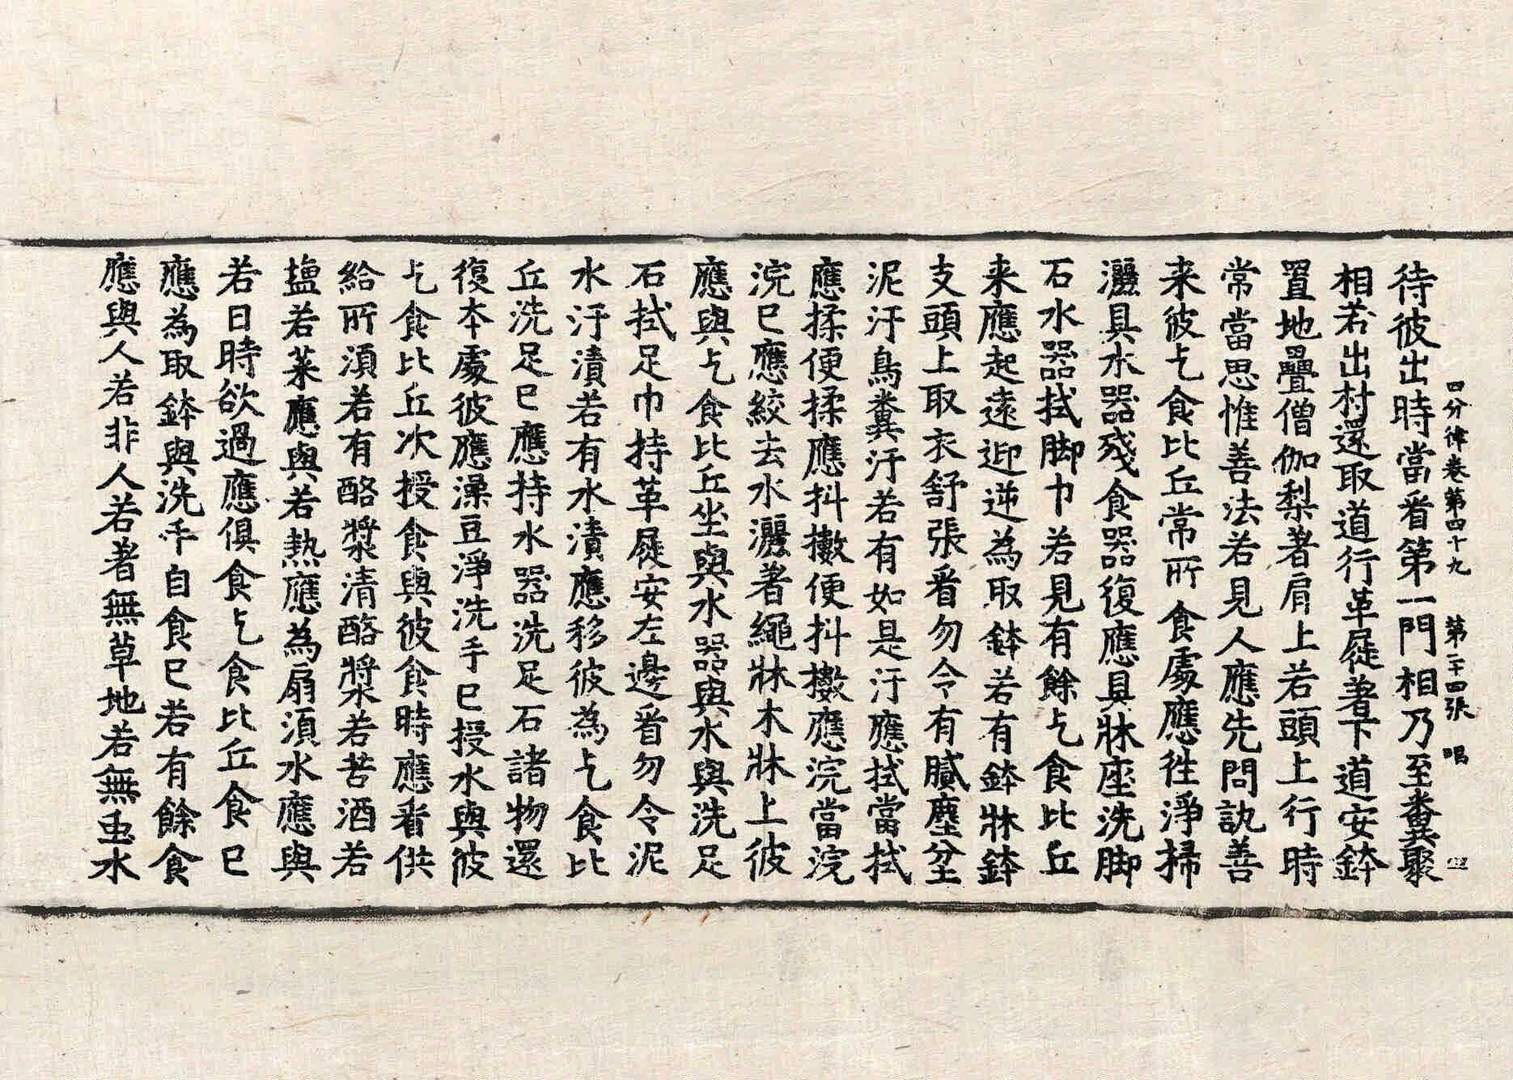 四分律卷第四十九　第二十四张　唱
待彼出時當看第一門相乃至糞聚
相若出村還取道行革屣著下道安鉢
置地疊僧伽梨著肩上若頭上行時
常當思惟善法若見人應先問訊善
来彼乞食比丘常所食處應往淨掃
灑具水器殘食器復應具牀座洗脚
石水器拭脚巾若見有餘乞食比丘
来應起遠迎逆為取鉢若有鉢牀鉢
支頭上取衣舒張看勿令有膩塵坌
泥汙鳥糞汙若有如是汙應拭當拭
應揉便揉應抖擻便抖擻應浣當浣
浣已應絞去水灑著繩牀木牀上彼
應與乞食比丘坐與水器與水與洗足
石拭足巾持革屣安左邊看勿令泥
水汙漬若有水漬應移彼為乞食比
丘洗足已應持水器洗足石諸物還
復本處彼應澡豆淨洗手已授水與彼
乞食比丘次授食與彼食時應看供
給所須若有酪漿清酪漿若苦酒若
鹽若菜應與若熱應為扇須水應與
若日時欲過應俱食乞食比丘食已
應為取鉢與洗手自食已若有餘食
應與人若非人若著無草地若無虫水